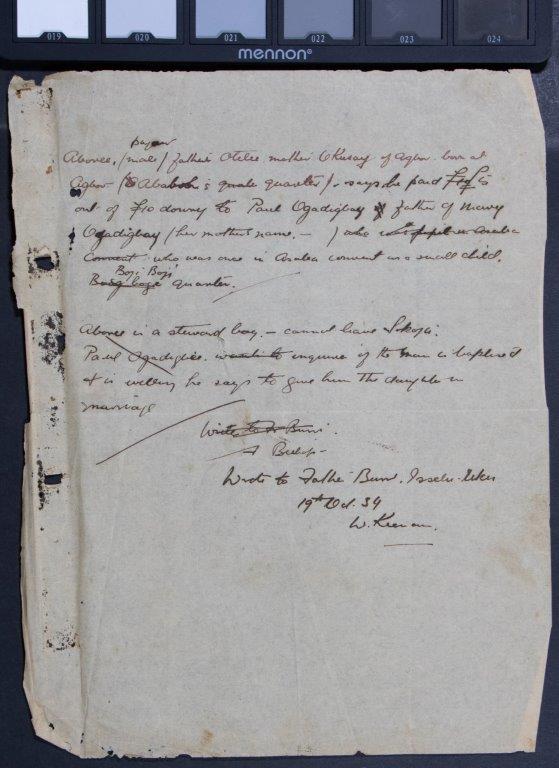 019 020 021 022 023 024
mennon®
pagan
Abovee, (male) father Otelee mother of Agbor born at
Agbor quarter). says he paid £
out of £10 downey to Paul Ogadigbay father of Mary
Ogadigbay (her mother's name. - ) who Asaba
Convent who was once in Asaba convent as a small child.
Boji Boji
quarter.
Abovee is a steward boy. - cannot leave Lokoja.
Paul Ogadigbe. wants to inquire if the man is baptised
& is willing he says to give him the daughter in
marriage
Wrote to Fr Burr.
Wrote to Father Burr. Issele-Uku
19th Oct. 34
W. Keenan.